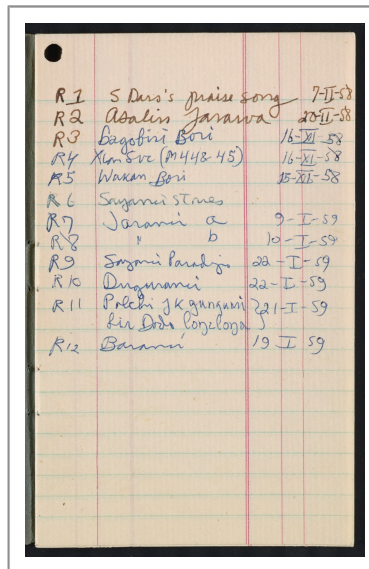 R 1 S Daro's praise song 7-II-58
R2 Asalin Jarawa 20-II-58
R3 Bagobiri Bori 16-XI-58
R4 Xlan Svc (M448-45) 16-XI-58
R5 Wakan Bori 15-XI-58
R6 Sayanci stories
R7 Jaranci a 9-I-59
R8 " b 10-I-59
R9 Sayanci Paradigs 22-I-59
R10 Duguranci 22-I-59
R11 Polchi jk gungumi } 21-I-59
Sir Dodo
R12 Baranci 19 I 59